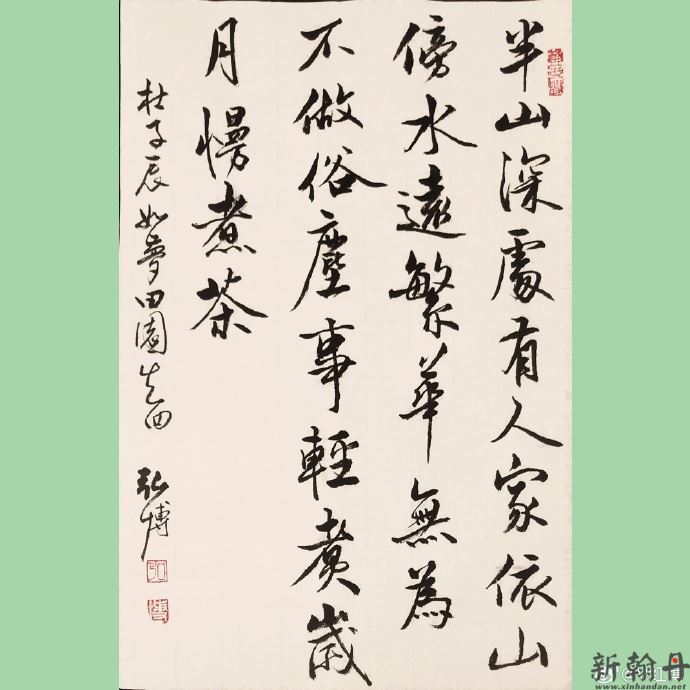 半山深處有人家依山
傍水遠繁華無為
不做俗塵事輕煮歲
月慢煮茶
杜子辰如夢田園之四
弘博
新翰丹
www.xinhandan.net